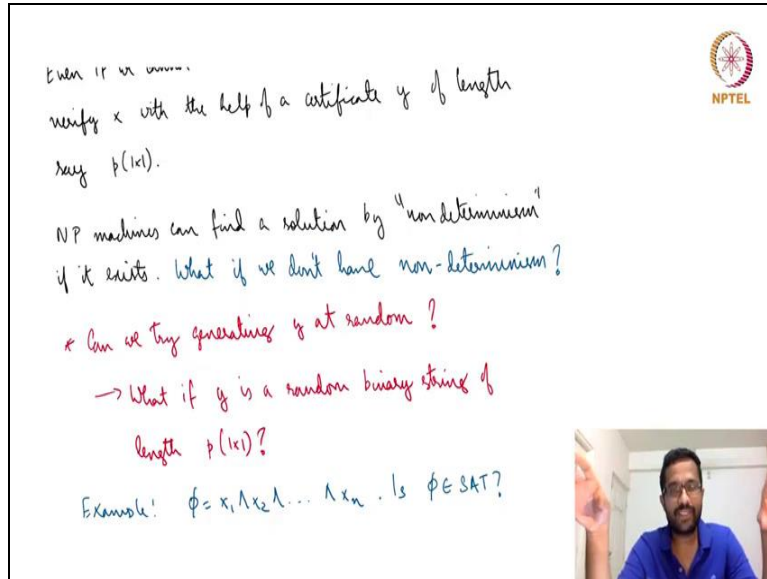 Even if
verify x with the help of a certificate y of length
say p(|x|).
NP machines can find a solution by "non determinism"
if it exists. What if we don't have non-determinism?
* Can we try generating y at random?
→ What if y is a random binary string of
length p(|x|)?
Example: φ = x₁ ∧ x₂ ∧ ... ∧ xₙ. Is φ ∈ SAT?
NPTEL